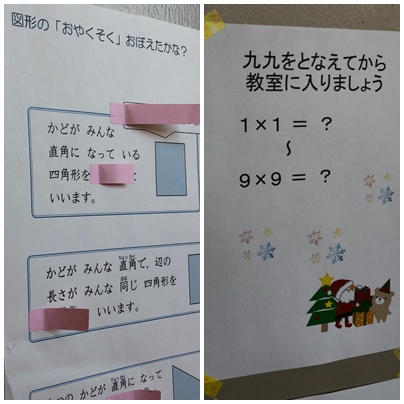 図形の「おやくそく」おぼえたかな？
かどが みんな
直角に なって いる
四角形を と
いいます。
かどが みんな 直角で，辺の
長さが みんな 同じ 四角形を
いいます。
つの かどが 直角に なって
九九をとなえてから
教室に入りましょう
１×１ ＝ ？
～
９×９ ＝ ？